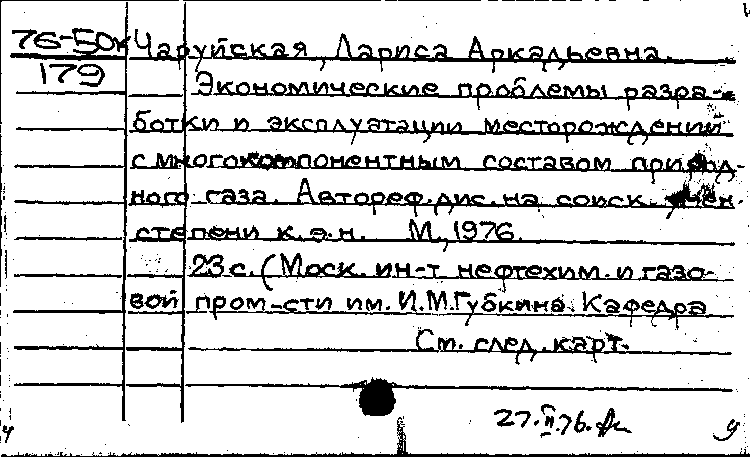 76-50к Чаруйская, Лариса Аркадьевна.
179 Экономические проблемы разра-
ботки и эксплуатации месторождений
с многокомпонентным составом природ-
ного газа. Автореф. дис. на соиск. учен.
степени к.э.н. М., 1976.
23 с. (Моск. ин-т нефтехим. и газо-
вой пром-сти им. И.М.Губкина. Кафедра
См. след. карт.
27.II.76.